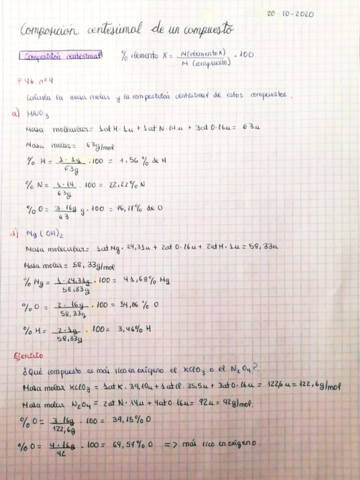 20-10-2020
Composición centesimal de un compuesto
Composición centesimal % elemento X = M(elemento X) / M(compuesto) · 100
P.46 nº4
Calcula la masa molar y la composición centesimal de estos compuestos.
a) HNO3
Masa molecular = 1at H·1u + 1at N·14u + 3at O·16u = 63u
Masa molar = 63g/mol
% H = 1·1g / 63g · 100 = 1,56% de H
% N = 1·14 / 63g · 100 = 22,22% N
% O = 3·16g / 63 g · 100 = % de O
d) Mg(OH)2
Masa molecular = 1at Mg·24,31u + 2at O·16u + 2at H·1u = 58,33u
Masa molar = 58,33g/mol
% Mg = 1·24,31g / 58,33g · 100 = 41,68% Mg
% O = 2·16g / 58,33g · 100 = 54,86% O
% H = 2·1g / 58,33g · 100 = 3,46% H
Ejercicio
¿Qué compuesto es más rico en oxígeno el KClO3 o el N2O4?
Masa molar KClO3 = 1at K·39,10u + 1at Cl·35,5u + 3at O·16u = 122,6u = 122,6g/mol
Masa molar N2O4 = 2at N·14u + 4at O·16u = 92u = 92g/mol
% O = 3·16g / 122,6g · 100 = 39,15% O
% O = 4·16g / 92 · 100 = 69,57% O => más rico en oxígeno